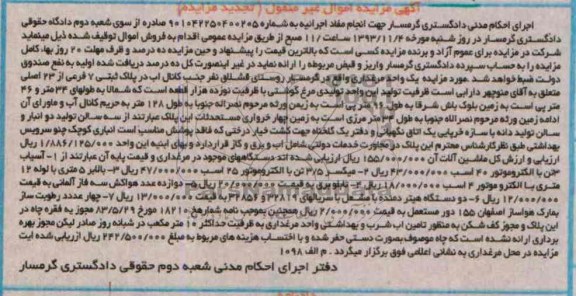 آگهی مزایده اموال غیر منقول (تجدید مزایده)
اجرای احکام مدنی دادگستری گرمسار جهت انجام مفاد اجرائیه به شماره ۹۰۱۰۴۲۲۵۰۴۰۰۲۰۵ صادره از سوی شعبه دوم دادگاه حقوقی
دادگستری گرمسار در روز شنبه مورخه ۱۳۹۳/۱۱/۴ ساعت ۱۱ صبح از طریق مزایده عمومی اقدام به فروش اموال توقیف شده ذیل مینماید
شرکت در مزایده برای عموم آزاد و برنده مزایده کسی است که بالاترین قیمت را پیشنهاد و حین مزایده ده درصد و ظرف مهلت ۲۰ روز بهاء کامل
مزایده را به حساب سپرده دادگستری گرمسار واریز و قبض مربوطه را ارائه نماید در غیر اینصورت کل ده درصد دریافت شده اولیه به نفع صندوق
دولت ضبط خواهد شد. مورد مزایده: یک واحد مرغداری واقع در گرمسار روستای قشلاق نفر جنب کانال آب در پلاک ثبتی ۷ فرعی از ۲۳ اصلی
متعلق به آقای منوچهر دارایی است ظرفیت تولید این واحد تولیدی مرغ گوشتی با ظرفیت نوزده هزار قطعه است که شمالا به طولهای ۳۴ متر و ۴۶
متر پی است به زمین بلوک باش شرقا به طول است به زمین ورثه مرحوم نصراله جنوبا به طول ۱۴۸ متر به حریم کانال آب و ماورای آن
ادامه زمین ورثه مرحوم نصراله جنوبا به طول متر مرزی است به زمین چهار خرواری مستحدثات این پلاک عبارتند از سه سالن تولید دو انبار و
سالن تولید دانه با سازه خرپایی یک اتاق نگهبانی و دفتر یک گلخانه جهت کشت خیار درختی که فاقد پوشش مناسب است انباری کوچک چنو سرویس
بهداشتی طبق نظر کارشناس محترم این پلاک در مجاورت خدمات دولتی شامل آب و برق و گاز قرار دارد و بهای ابنیه این واحد ۱/۸۸۶/۱۲۵/۰۰۰ ریال
ارزیابی و ارزش کل ماشین آلات آن ۱۵۵/۰۰۰/۰۰۰ ریال ارزیابی شده اند دستگاههای موجود در مرغداری و قیمت پایه آن عبارتند از ۱- آسیاب
تن با الکتروموتور ۴۰ اسب ۴۳/۰۰۰/۰۰۰ ریال ۲- میکسر ۳/۵ تن با الکتروموتور ۲۵ اسب ۴۷/۰۰۰/۰۰۰ ریال ۳- بالابر ۵ متری با لوله ۱۲
متری با الکترو موتور ۴ اسب ۱۸/۰۰۰/۰۰۰ ریال ۴- تابلو برق به قیمت ریال ۵- دوازده عدد هواکش سه فاز آلمانی به قیمت
۱۲/۰۰۰/۰۰۰ ریال ۶- دو دستگاه هیتر دمنده با مشعل با سریالهای ۳۲۸۱۹ و ۳۴۸۵۶ به قیمت ۱۳/۰۰۰/۰۰۰ ریال ۷- چهار عدد رطوبت ساز
بمارک هواساز اصفهان ۱۵۵ دور مستعمل به قیمت ۲/۰۰۰/۰۰۰ ریال همچنین بموجب نامه شماره ۱۸۲۱۰ مورخ ۸۳/۵/۲۹ مجوز یه فقره چاه در
این پلاک و مجوز کف شکن به منظور تامین آب شرب و بهداشتی واحد مرغداری به ظرفیت حداکثر ۱۰ متر مکعب در شبانه روز صادر لیکن مجوز بهره
برداری ارائه نشده است که چاه موصوف بصورت دستی حفر شده و با احتساب هزینه های مربوط به مبلغ ۲۴۲/۵۰۰/۰۰۰ ریال ارزیابی شده ایت
مزایده در محل مرغداری به نشانی اعلامی فوق برگزار میگردد. م الف ۱۰۹۸
دفتر اجرای احکام مدنی شعبه دوم حقوقی دادگستری گرمسار